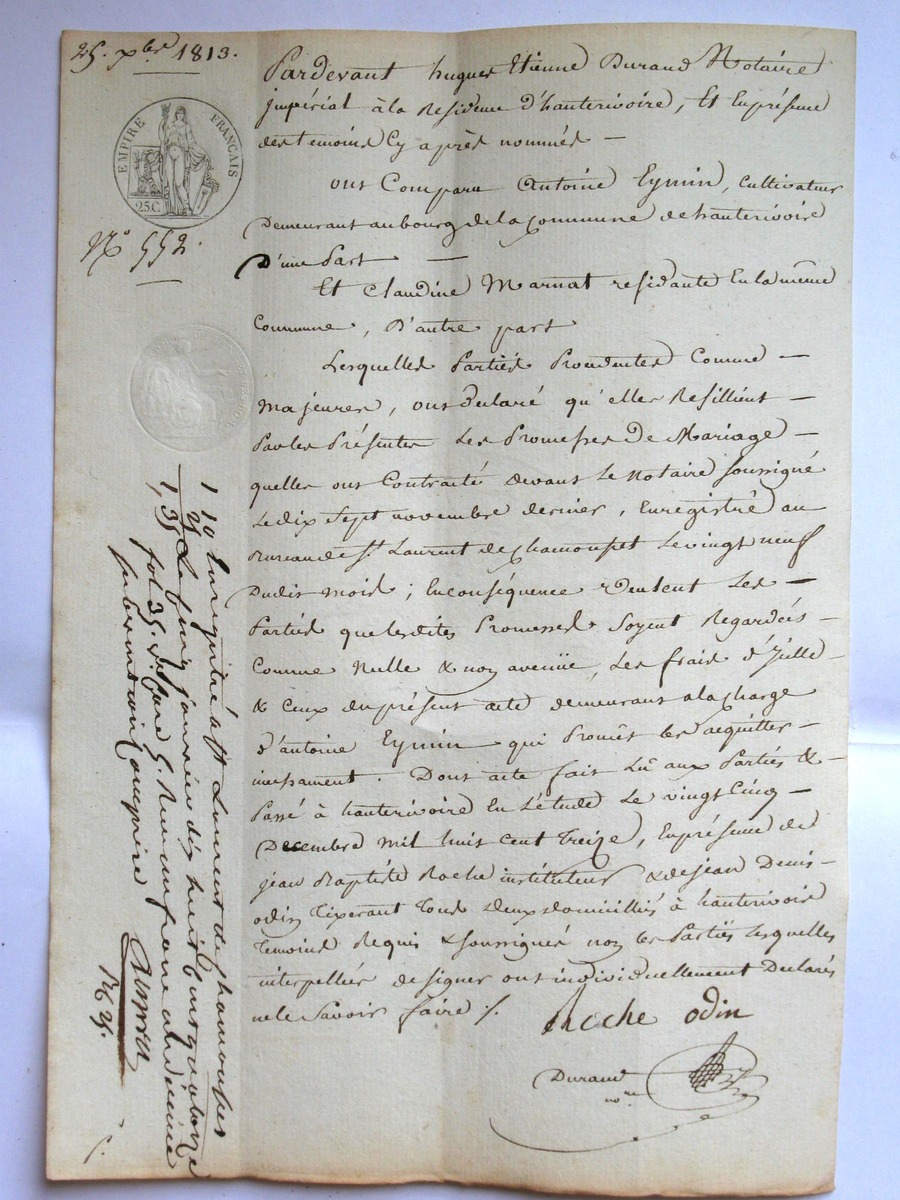 25. xbre 1813.
EMPIRE FRANÇAIS
25 C.
N° 552.
Pardevant hugues Etienne Durand Notaire
jmpérial à la Residence d'hauterivoire, Et En présence
des temoins Cy après nommés —
ont Comparu Antoine Eymin, Cultivateur
Demeurant au bourg de la Commune de hauterivoire
D'une Part —
Et Claudine Marnat residante En la même
Commune, D'autre part
Lesquelles Parties Procedentes Comme —
Majeures, ont declaré qu'elles Resilient —
Par les Présentes Les Promesses De Mariage —
quelles ont Contracté devant Le Notaire soussigné
Le dix sept novembre dernier, Enregistré au
Bureau de St. Laurent de Chamousset Le vingt neuf
Dudit mois ; En conséquence veulent Les —
Parties que lesdites Promesses Soyent Regardées —
Comme Nulle & non avenüe, Les frais d'Jcelle —
& Ceux du présent acte demeurant a la charge
d'antoine Eymin qui Promet les acquitter —
incessament. Dont acte fait Lû aux Parties & —
Passé à hauterivoire En L'étude Le vingt Cinq —
Decembre mil huit cent Treize, En présence de
jean Baptiste Roche instituteur & de jean Denis —
odin Tixerant Tous Deux domiciliés à hauterivoire
Temoins Requis & soussignés non les Parties Lesquelles
interpellées de signer ont individuellement Declarés
ne le Savoir faire ./.
Roche odin
Durand
nore
1 10 Enregistré à St. Laurent de chamousset
25 Le cinq janvier dix huit cent quatorze
1,35 fol. 35. v. Case 5. Reçu un franc un décime
subvention comprise
Rt 25.